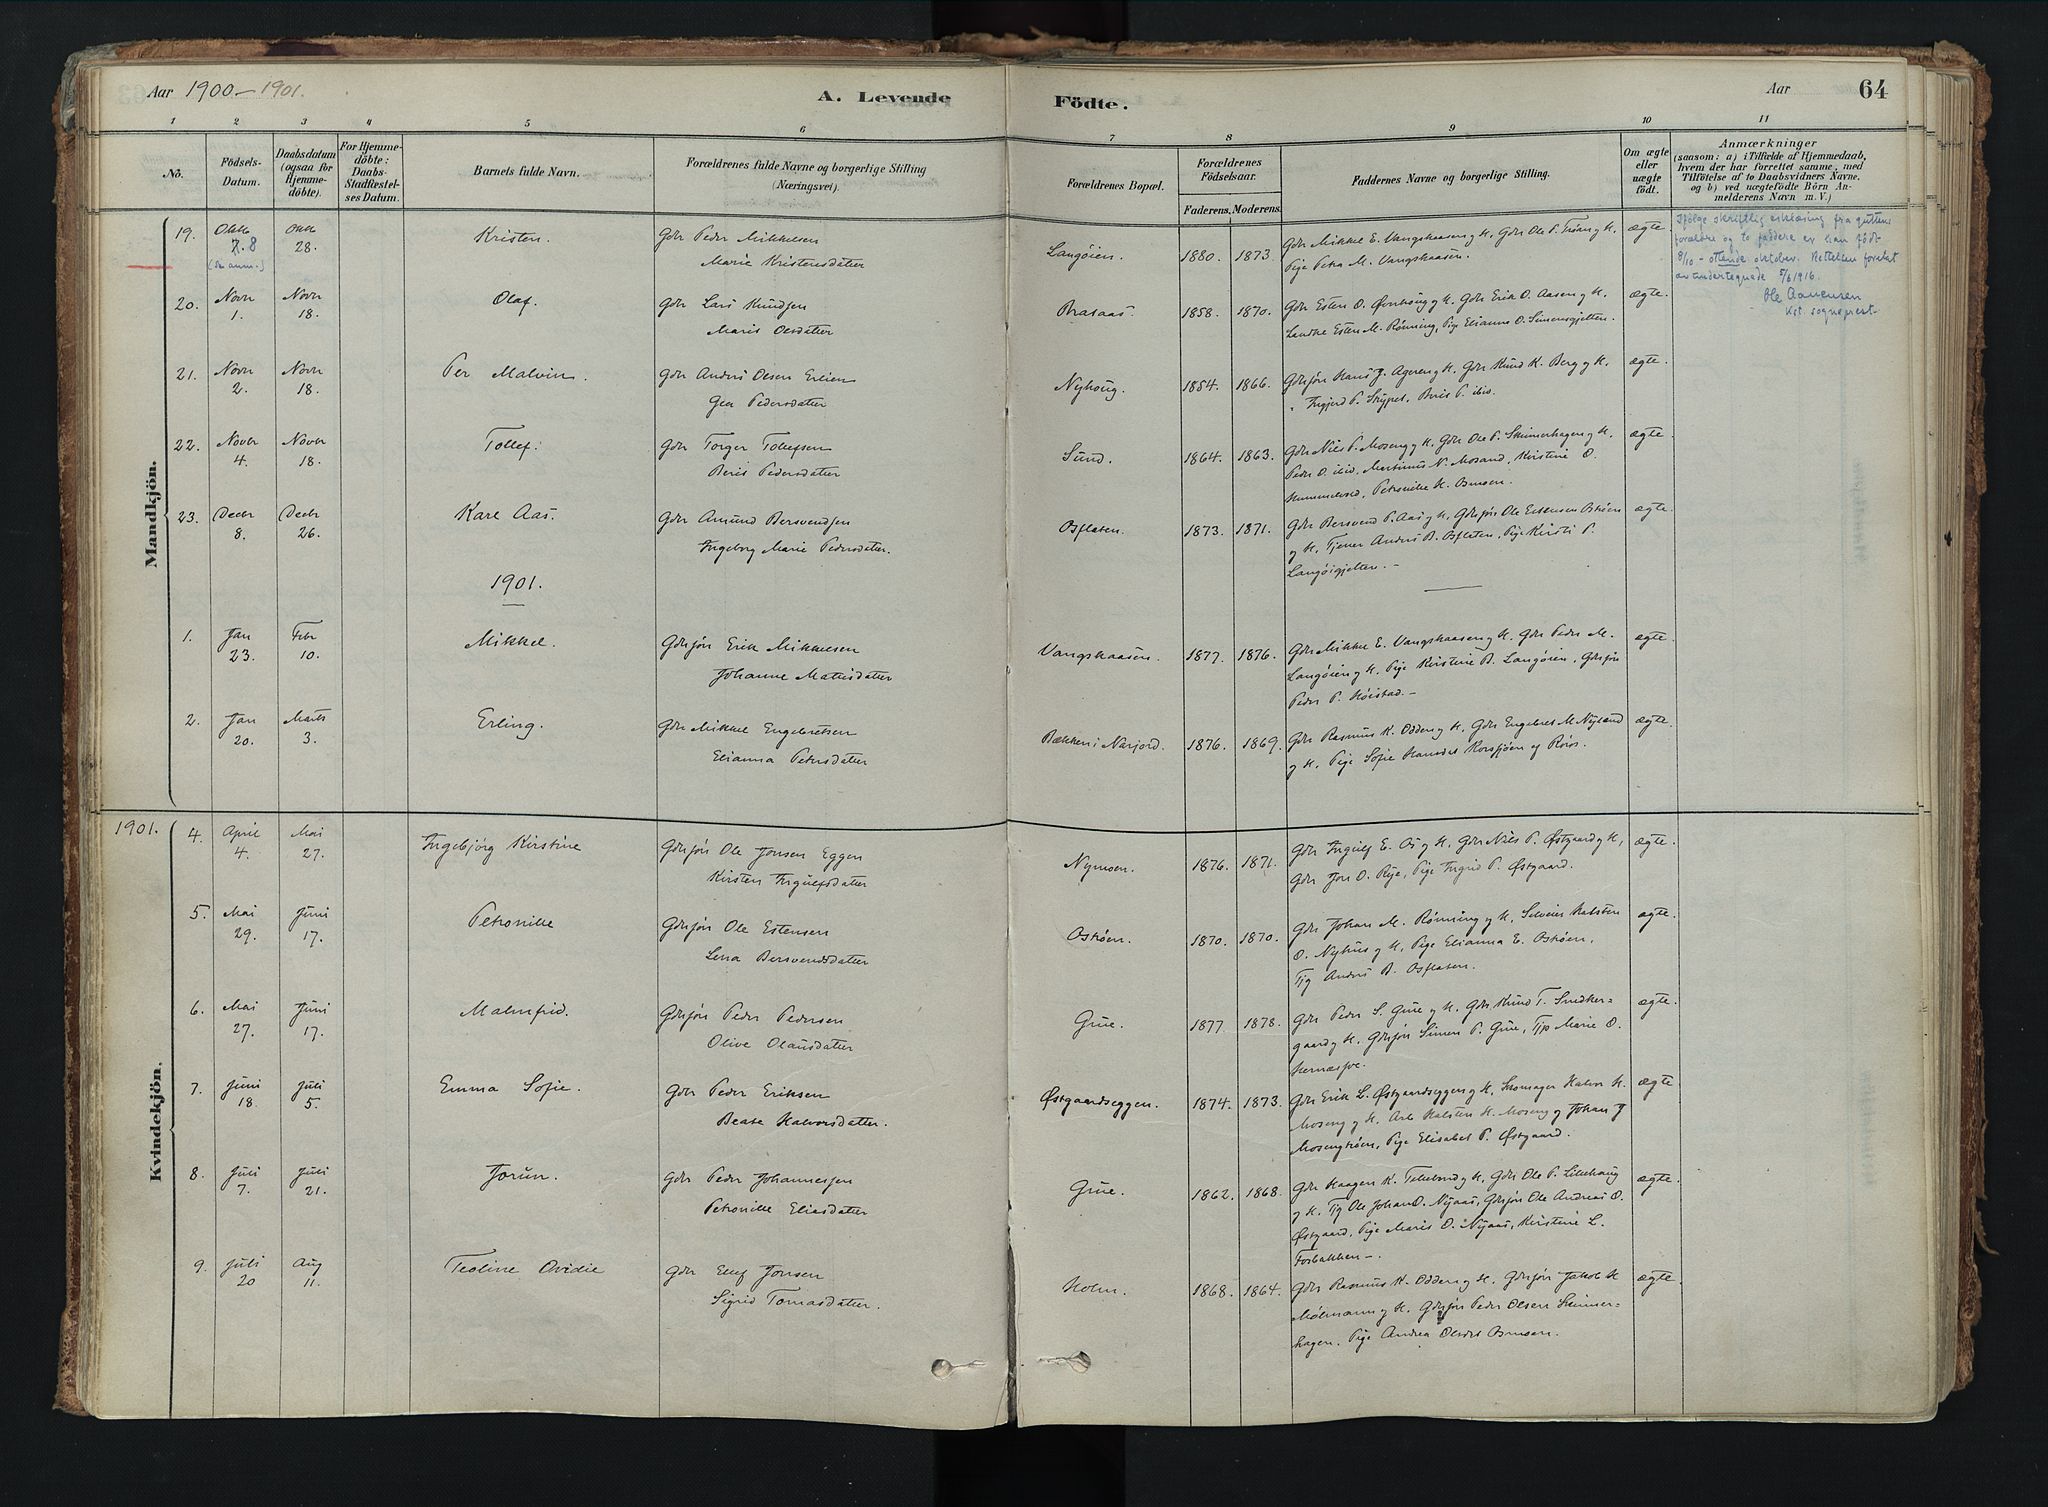 Aar 1900-1901.
A. Levende Födte.
Aar
64
1 2 3 4 5 6 7 8 9 10 11
No.
Födsels-
Datum.
Daabsdatum
(ogsaa for
Hjemme-
döbte).
For Hjemme-
döbte:
Daabs-
Stadfæstel-
ses Datum.
Barnets fulde Navn.
Forældrenes fulde Navne og borgerlige Stilling
(Næringsvei).
Forældrenes Bopæl.
Forældrenes
Födselsaar.
Faderens. Moderens.
Faddernes Navne og borgerlige Stilling.
Om ægte
eller
uægte
födt.
Anmærkninger
(saasom: a) i Tilfælde af Hjemmedaab,
hvem der har forrettet samme, med
Tilföielse af to Daabsvidners Navne,
og b) ved uægtefödte Börn An-
melderens Navn m. V.)
Mandkjön.
19. Oktb 7. 8 (se anm.) Oktb 28. Kristen. Gbr Peder Mikkelsen
Marie Kristensdatter
Langøien. 1880. 1873. Gbr Mikkel E. Vangskaasen g K, Gbr Ole P. Trøan g K,
Pige Petra M. Vangskaasen.
ægte.
Ifølge skriftlig erklæring fra guttens
forældre og to faddere er han født
8/10 - ottende oktober. Rettelsen foretat
av undertegnede 5/6 1916.
Ole Aanensen
Kst. sogneprest
20. Novbr 1. Novbr 18. Olaf. Gbr Lars Knudsen
Maris Olsdatter
Brasaas. 1858. 1870. Gbr Esten O. Ørnhoug g K. Gbr Erik O. Aasen g K,
Landhr Esten M. Rønning, Pige Elianne O. Simensgjelten.
ægte.
21. Novbr 2. Novbr 18. Per Malvin. Gbr Anders Olsen Erlien
Gea Pedersdatter
Nyhoug. 1854. 1866. Gbrsøn Hans J. Ageren g K, Gbr Knud K. Berg g K,
" Ingjerd P. Skypet, Beris P. ibid.
ægte.
22. Novbr 4. Novbr 18. Tollef. Gbr Torger Tollefsen
Beris Pedersdatter
Sund. 1864. 1863. Gbr Niels P. Moseng g K, Gbr Ole P. Skinnerhagen g K,
Peder O. ibid, Martinus N. Mosand, Kirstine O.
Hummelvold, Petronille H. Osmoen.
ægte.
23. Decbr 8. Decbr 26. Karl Aas. Gbr Amund Bersvendsen
Ingeborg Marie Pedersdatter.
Osflaten. 1873. 1871. Gbr Bersvend P. Aas g K, Gbrsøn Ole Estensen Ostrøen
g K, Tjener Anders B. Osflaten, Pige Kirsti P.
Langøigjelten. -
ægte.
1901.
1. Jan 23. Febr 10. Mikkel. Gbrsøn Erik Mikkelsen
Johanne Matisdatter
Vangskaasen. 1877. 1876. Gbr Mikkel E. Vangskaasen g K, Gbr Peder M.
Langøien g K. Pige Kirstine B. Langøien, Gbrsøn
Peder P. Høistad. -
ægte.
2. Jan 20. Marts 3. Erling. Gbr Mikkel Engebretsen
Elianna Petersdatter
Bækken i Narjord. 1876. 1869. Gbr Rasmus K. Odden g K, Gbr Engebret M. Nyland
g K, Pige Sofie Hansdt Korssjøen af Røros.
ægte.
1901.
Kvindekjön.
4. April 4. Mai 27. Ingebjørg Kirstine Gbrsøn Ole Jonsen Eggen
Kirsten Ingulfsdatter
Nymoen. 1876. 1871. Gbr Ingulf E. Os g K, Gbr Niels P. Østgaard g K,
Gbr Jon O. Rye, Pige Ingrid P. Østgaard.
ægte.
5. Mai 29. Juni 17. Petronille Gbrsøn Ole Estensen
Lena Bersvendsdatter
Ostrøen. 1870. 1870. Gbr Johan M. Rønning g K, Selveier Halsten
O. Nyhus g K, Pige Elianna E. Ostrøen,
Tjg Anders B. Osflaten.
ægte.
6. Mai 27. Juni 17. Malmfrid. Gbrsøn Peder Pedersen
Olive Olausdatter
Grue. 1877. 1878. Gbr Peder S. Grue g K, Gbr Knud T. Smedker-
gaard g K, Gbrsøn Simen P. Grue, Tjp Marie O.
ægte.
7. Juni 18. Juli 5. Emma Sofie. Gbr Peder Eriksen
Beate Halvorsdatter.
Østgaardseggen. 1874. 1873. Gbr Erik L. Østgaardseggen g K, Skomager Halvor H.
Moseng g K, Arb Halsten H. Moseng g Johan J
Mosengtrøen, Pige Elisabet P. Østgaard.
ægte.
8. Juli 7. Juli 21. Jorun. Gbr Peder Johannessen
Petronille Eliasdatter
Grue. 1862. 1868. Gbr Haagen K. Tellebond g K, Gbr Ole P. Lillehaug
g K. Tjg Ole Johan O. Nyaas, Gbrsøn Ole Andreas O.
Østgaard, Pige Maris O. Nyaas, Kirstine L.
Forbakken -.
ægte.
9. Juli 20 Aug 11. Teoline Ovidie Gbr Ellef Jonsen
Sigrid Tomasdatter.
Holm. 1868. 1864. Gbr Rasmus K. Odden g K. Gbrsøn Jakob H
Mølmann g K. Gbrsøn Peder Olsen Skinner-
hagen. Pige Andrea Olsdt Osmoen.
ægte.